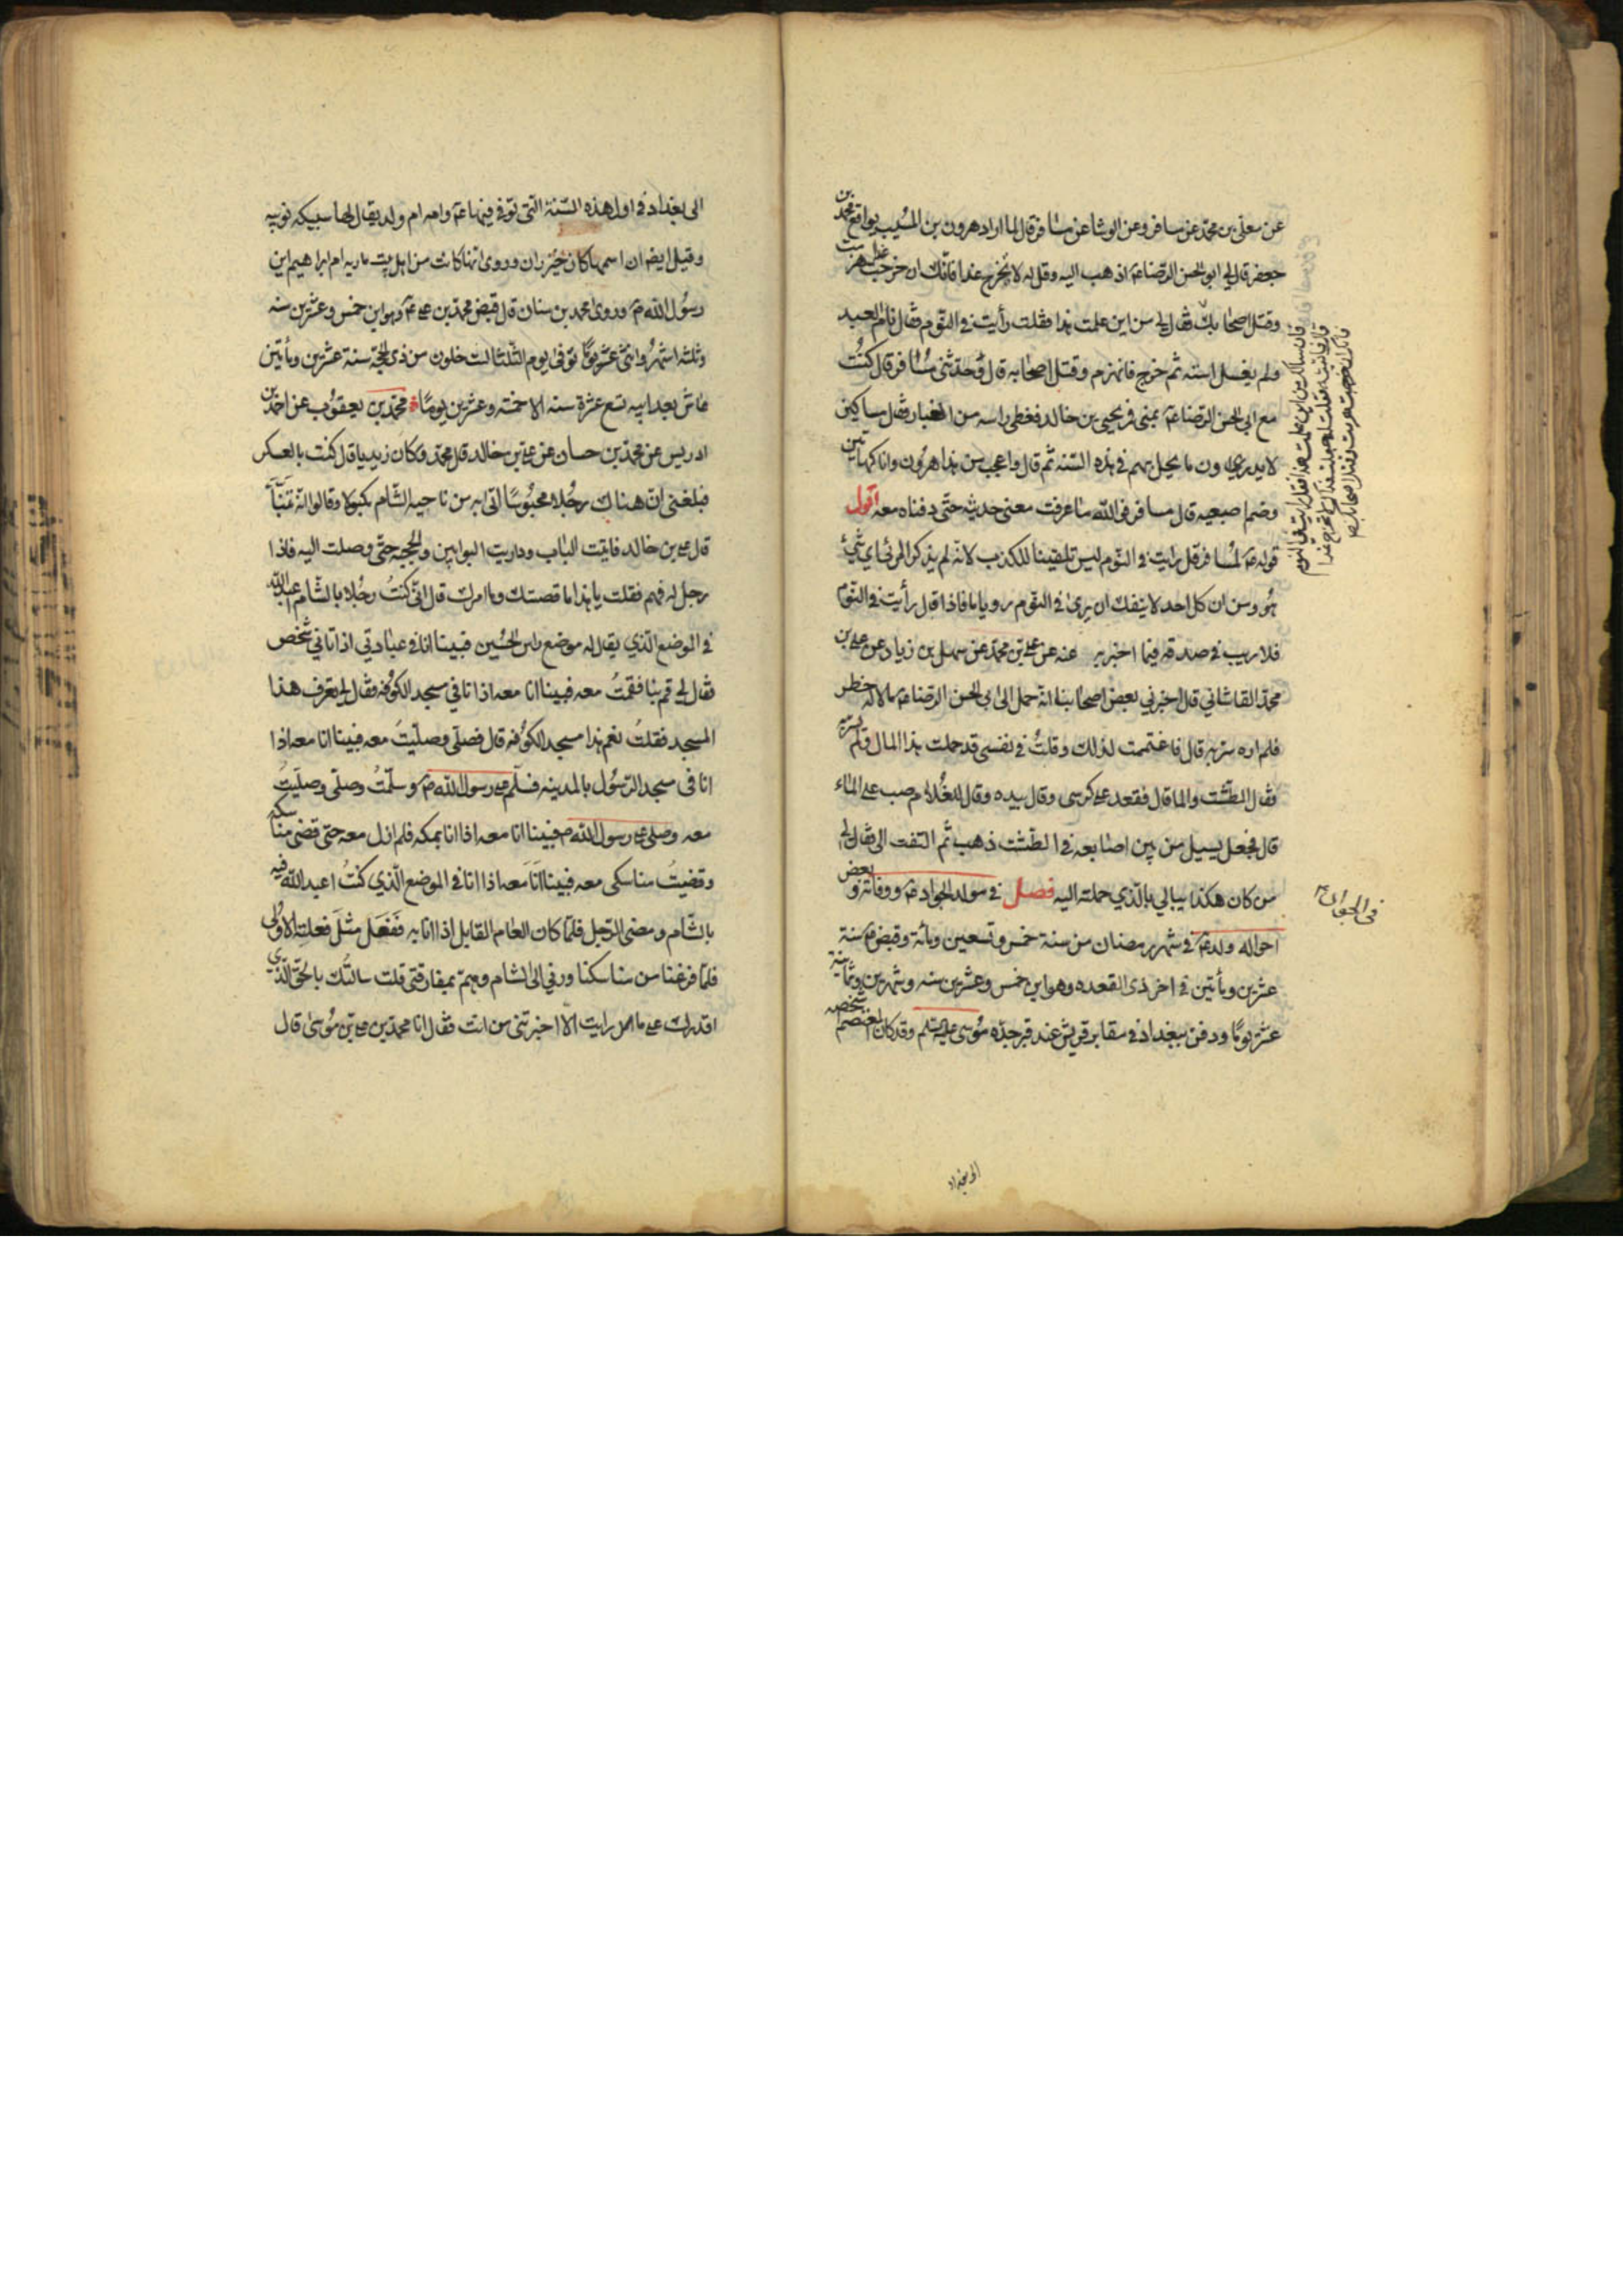 عن معلى بن محمد عن مسافر وعن الوشا عن مسافر قال لما اراد هرون بن المسيب يواقع محمد بن
جعفر قال لي ابو الحسن الرضا ع اذهب اليه وقل له لا تخرج غدا فانك ان خرجت غدا هزمت
وقتل اصحابك فقال لي من اين علمت هذا فقلت رأيت في النوم فقال نام العبد
ولم يغسل استه ثم خرج فانهزم وقتل اصحابه قال وحدثني مسافر قال كنت
مع ابي الحسن الرضا ع بمنى فمر يحيى بن خالد فغطى راسه من الغبار فقال مساكين
لا يدري ون ما يحل بهم في هذه السنه ثم قال واعجب من هذا هرون وانا كهاتين
وضم اصبعيه قال مسافر فو الله ما عرفت معنى حديثه حتى دفناه معه اقول
قوله ع لمسافر قل رايت في النوم ليس تلقينا للكذب لانه لم يذكر المرئي اي شيء
هو ومن ان كل احد لا ينفك ان يرى في النوم رويا ما فاذا قال رأيت في النوم
فلا ريب في صدقه فيما اخبر به عنه عن علي بن محمد عن سهل بن زياد عن علي بن
محمد القاشاني قال اخبرني بعض اصحابنا انه حمل الى ابي الحسن الرضا ع مالا له خطر
فلم اره سر به قال فاغتممت لذلك وقلت في نفسي قد حملت هذا المال ولم يسر به
فقال الطشت والما قال فقعد على كرسى وقال بيده وقال للغلام صب علي الماء
قال فجعل يسيل من بين اصابعه في الطشت ذهب ثم التفت الي فقال لي
من كان هكذا يبالي بالذي حملته اليه فصل في مولد الجواد ع ووفاته وبعض
احواله ولد ع في شهر رمضان من سنة خمس وتسعين ومأة وقبض ع سنة
عشرين ومأتين في اخر ذي القعده وهو ابن خمس وعشرين سنه وشهرين وثمانية
عشر يوما ودفن ببغداد في مقابر قريش عند قبر جده موسى عليه السلم وقد كان المعتصم اشخصه
في الجواد ع
الى بغداد
الى بغداد في اول هذه السنة التي توفي فيها ع وامه ام ولد يقال لها سبيكه نوبيه
وقيل ايضا ان اسمها كان خيزران وروى انها كانت من اهل بيت ماريه ام ابراهيم ابن
رسول الله ص وروى محمد بن سنان قال قبض محمد بن علي ع وهو ابن خمس وعشرين سنه
وثلثه اشهر واثنى عشر يوما توفى يوم الثلثا لست خلون من ذي الحجة سنة عشرين ومأتين
عاش بعد ابيه تسع عشرة سنه الا خمسة وعشرين يوما محمد بن يعقوب عن احمد بن
ادريس عن محمد بن حسان عن علي بن خالد قال محمد وكان زيديا قال كنت بالعسكر
فبلغني ان هناك رجلا محبوسا اتى به من ناحيه الشام مكبولا وقالوا انه تنبأ
قال علي بن خالد فاتيت الباب وداريت البوابين والحجبه حتى وصلت اليه فاذا
رجل له فهم فقلت يا هذا ما قصتك وما امرك قال اني كنت رجلا بالشام اعبد الله
في الموضع الذي يقال له موضع راس الحسين فبينا انا في عبادتي اذ اتاني شخص
فقال لي قم بنا فقمت معه فبينا انا معه اذا انا في مسجد الكوفه فقال لي تعرف هذا
المسجد فقلت نعم هذا مسجد الكوفه قال فصلى وصليت معه فبينا انا معه اذا
انا فى مسجد الرسول بالمدينه فسلم على رسول الله ص وسلمت وصلى وصليت
معه وصلى على رسول الله ص فبينا انا معه اذا انا بمكه فلم ازل معه حتى قضى مناسكه
وقضيت مناسكى معه فبينا انا معه اذا انا في الموضع الذي كنت اعبد الله فيه
بالشام ومضى الرجل فلما كان العام القابل اذا انا به ففعل مثل فعلته الاولى
فلما فرغنا من مناسكنا وردني الى الشام وهم بمفارقتي قلت سالتك بالحق الذي
اقدرك على ما رايت الا اخبرتني من انت فقال انا محمد بن علي بن موسى قال